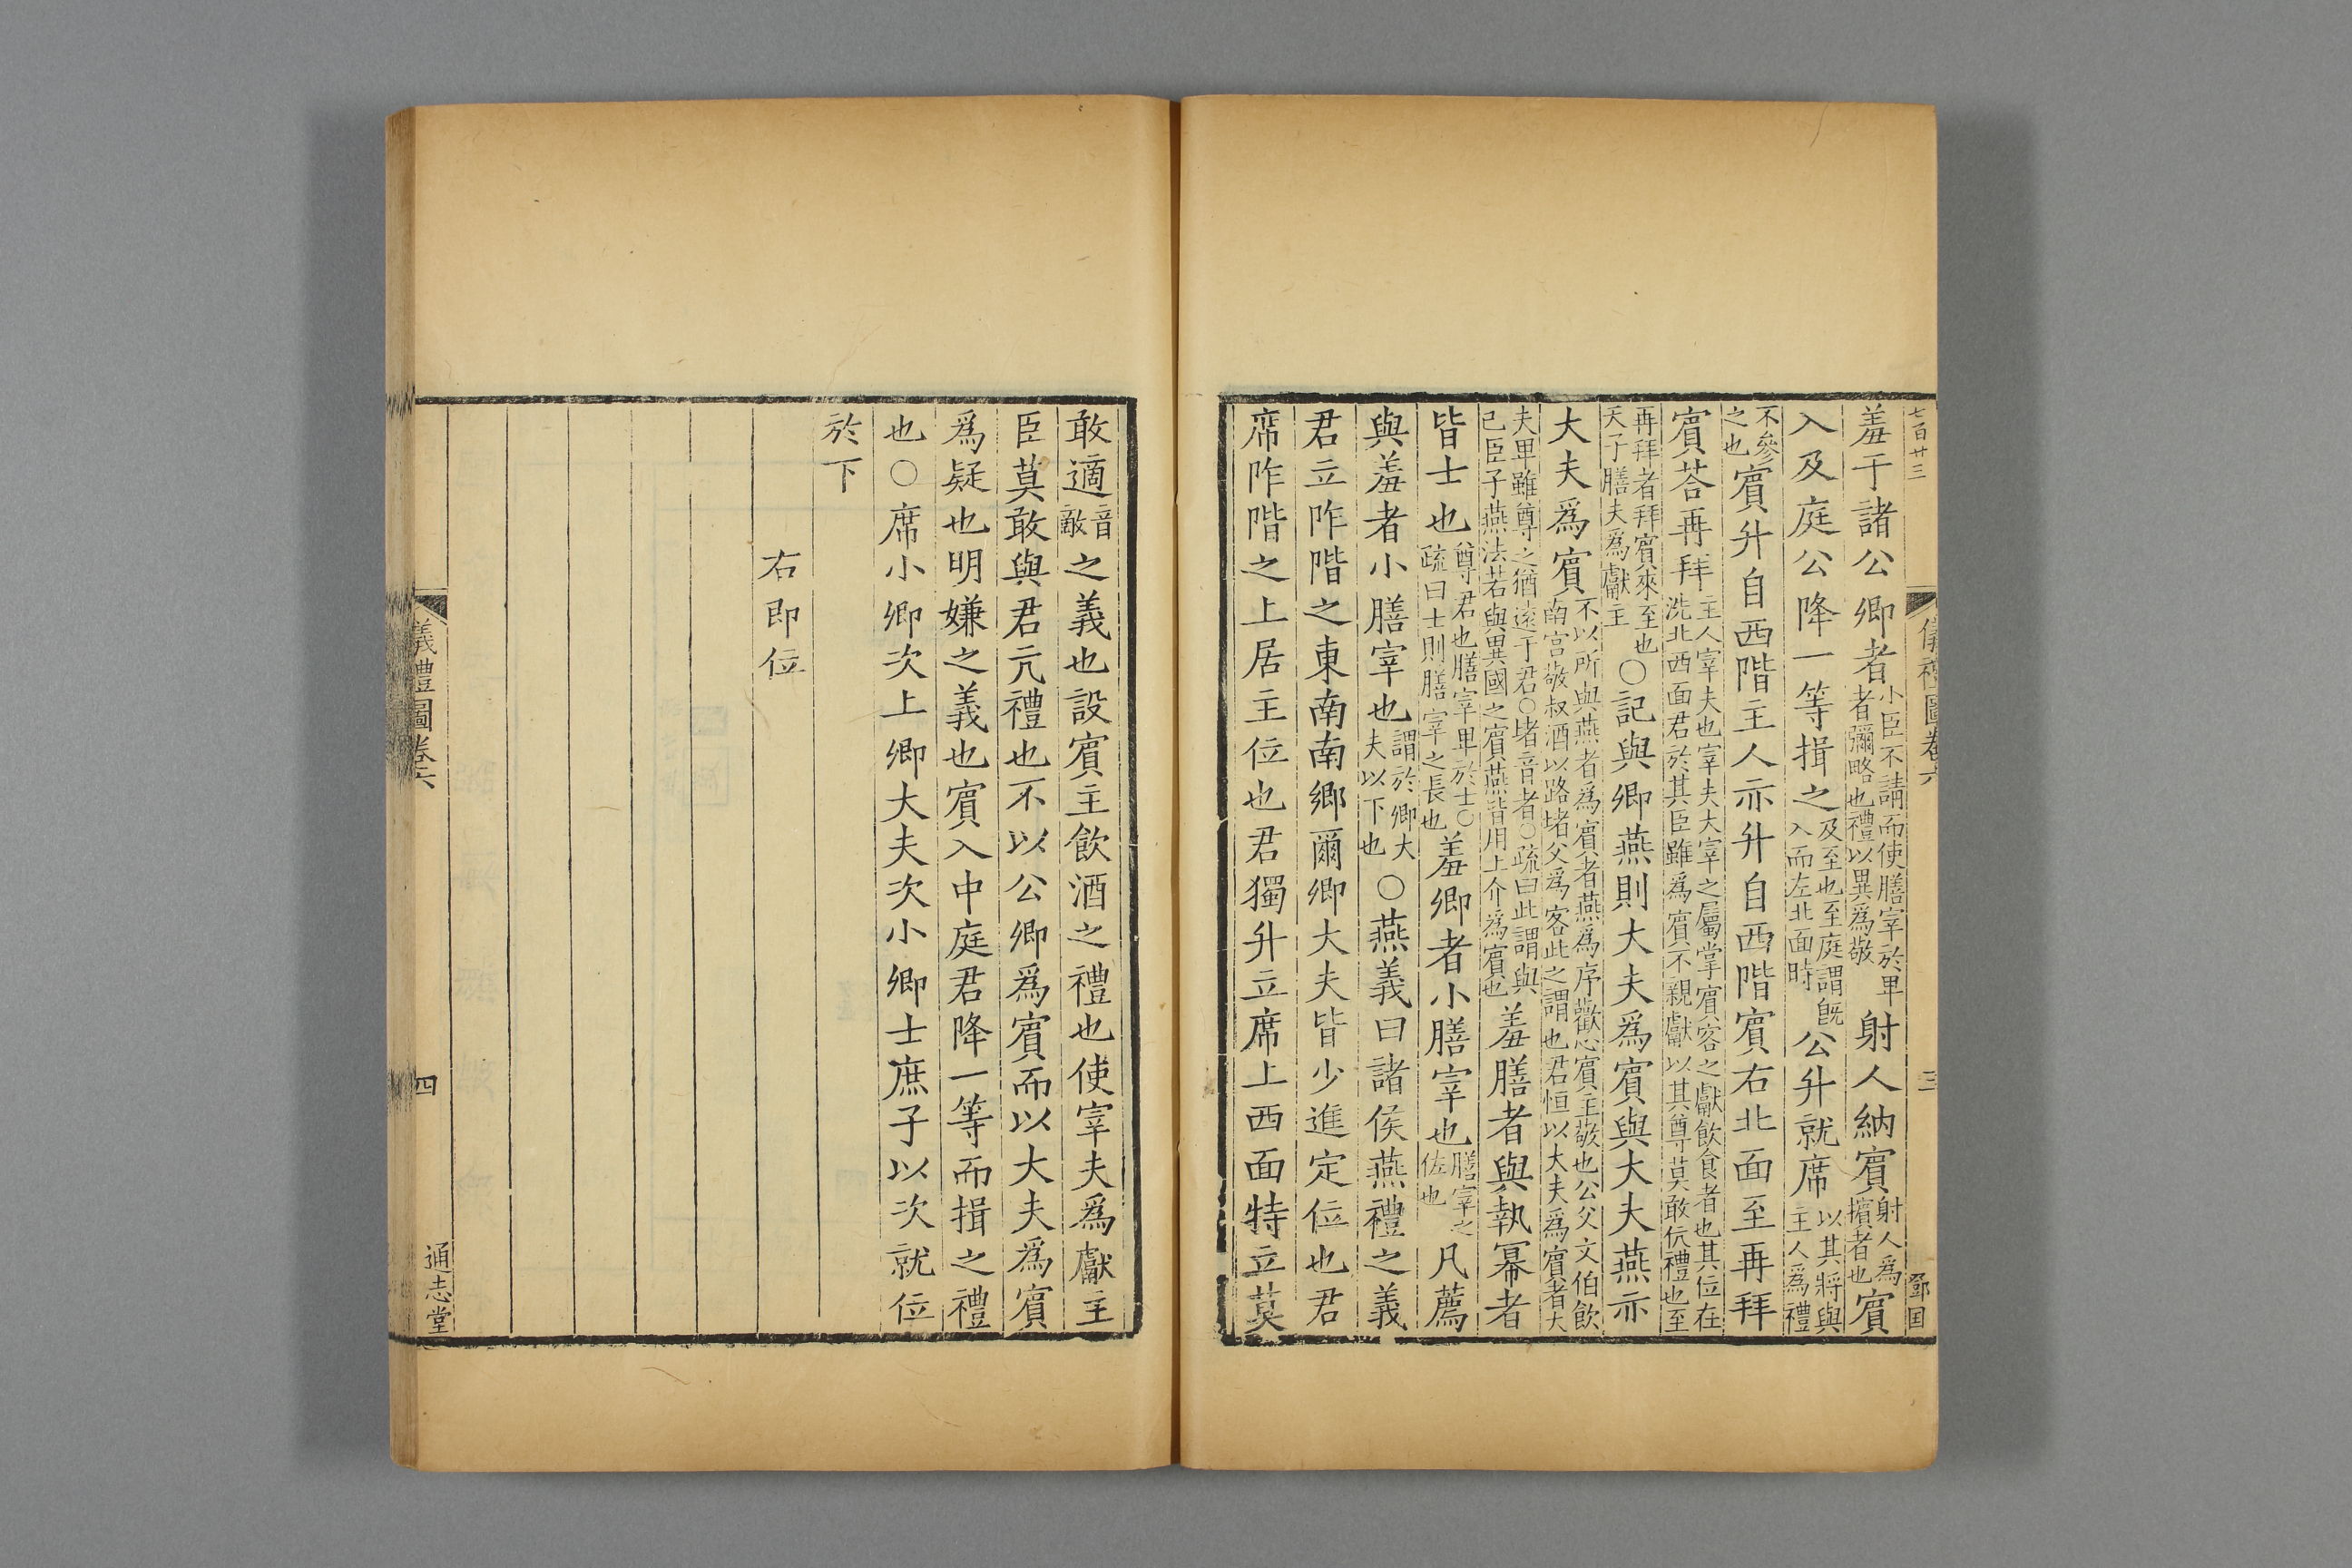 七百廿三
儀禮圖卷六
三
鄧国
羞于諸公卿者小臣不請而使膳宰於卑者彌略也禮以異爲敬射人納賓射人爲擯者也賓
入及庭公降一等揖之及至也至庭謂既入而左北面時公升就席以其將與主人爲禮
不參之也賓升自西階主人亦升自西階賓右北面至再拜
賓荅再拜主人宰夫也宰夫大宰之屬掌賓客之獻飲食者也其位在洗北西面君於其臣雖爲賓不親獻以其尊莫敢伉禮也至
再拜者拜賓來至也天子膳夫爲獻主○記與卿燕則大夫爲賓與大夫燕亦
大夫爲賓不以所與燕者爲賓者燕爲序歡心賓主敬也公父文伯飲南宮敬叔酒以路堵父爲客此之謂也君恒以大夫爲賓者大
夫卑雖尊之猶遠于君○堵音者○疏曰此謂與己臣子燕法若與異國之賓燕皆用上介爲賓也羞膳者與執冪者
皆士也尊君也膳宰卑於士○疏曰士則膳宰之長也羞卿者小膳宰也膳宰之佐也凡薦
與羞者小膳宰也謂於卿大夫以下也○燕義曰諸侯燕禮之義
君立阼階之東南南鄉爾卿大夫皆少進定位也君
席阼階之上居主位也君獨升立席上西面特立莫
敢適音敵之義也設賓主飲酒之禮也使宰夫爲獻主
臣莫敢與君亢禮也不以公卿爲賓而以大夫爲賓
爲疑也明嫌之義也賓入中庭君降一等而揖之禮
也○席小卿次上卿大夫次小卿士庶子以次就位
於下
右即位
儀禮圖卷六
四
通志堂